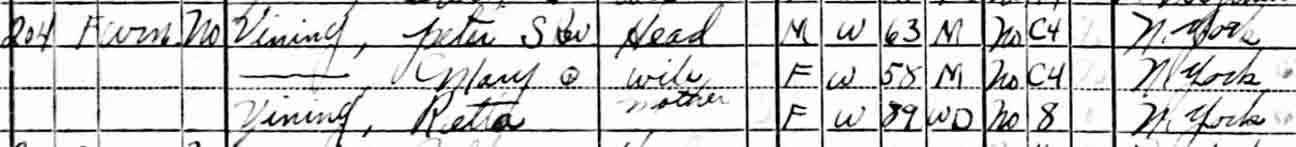 204 Farm No Vining, Peter S Head M W 63 M No C4 N. York
—, Mary ⓧ wife F W 58 M No C4 N York
Vining, Retta Mother F W 89 WD No 8 N. York